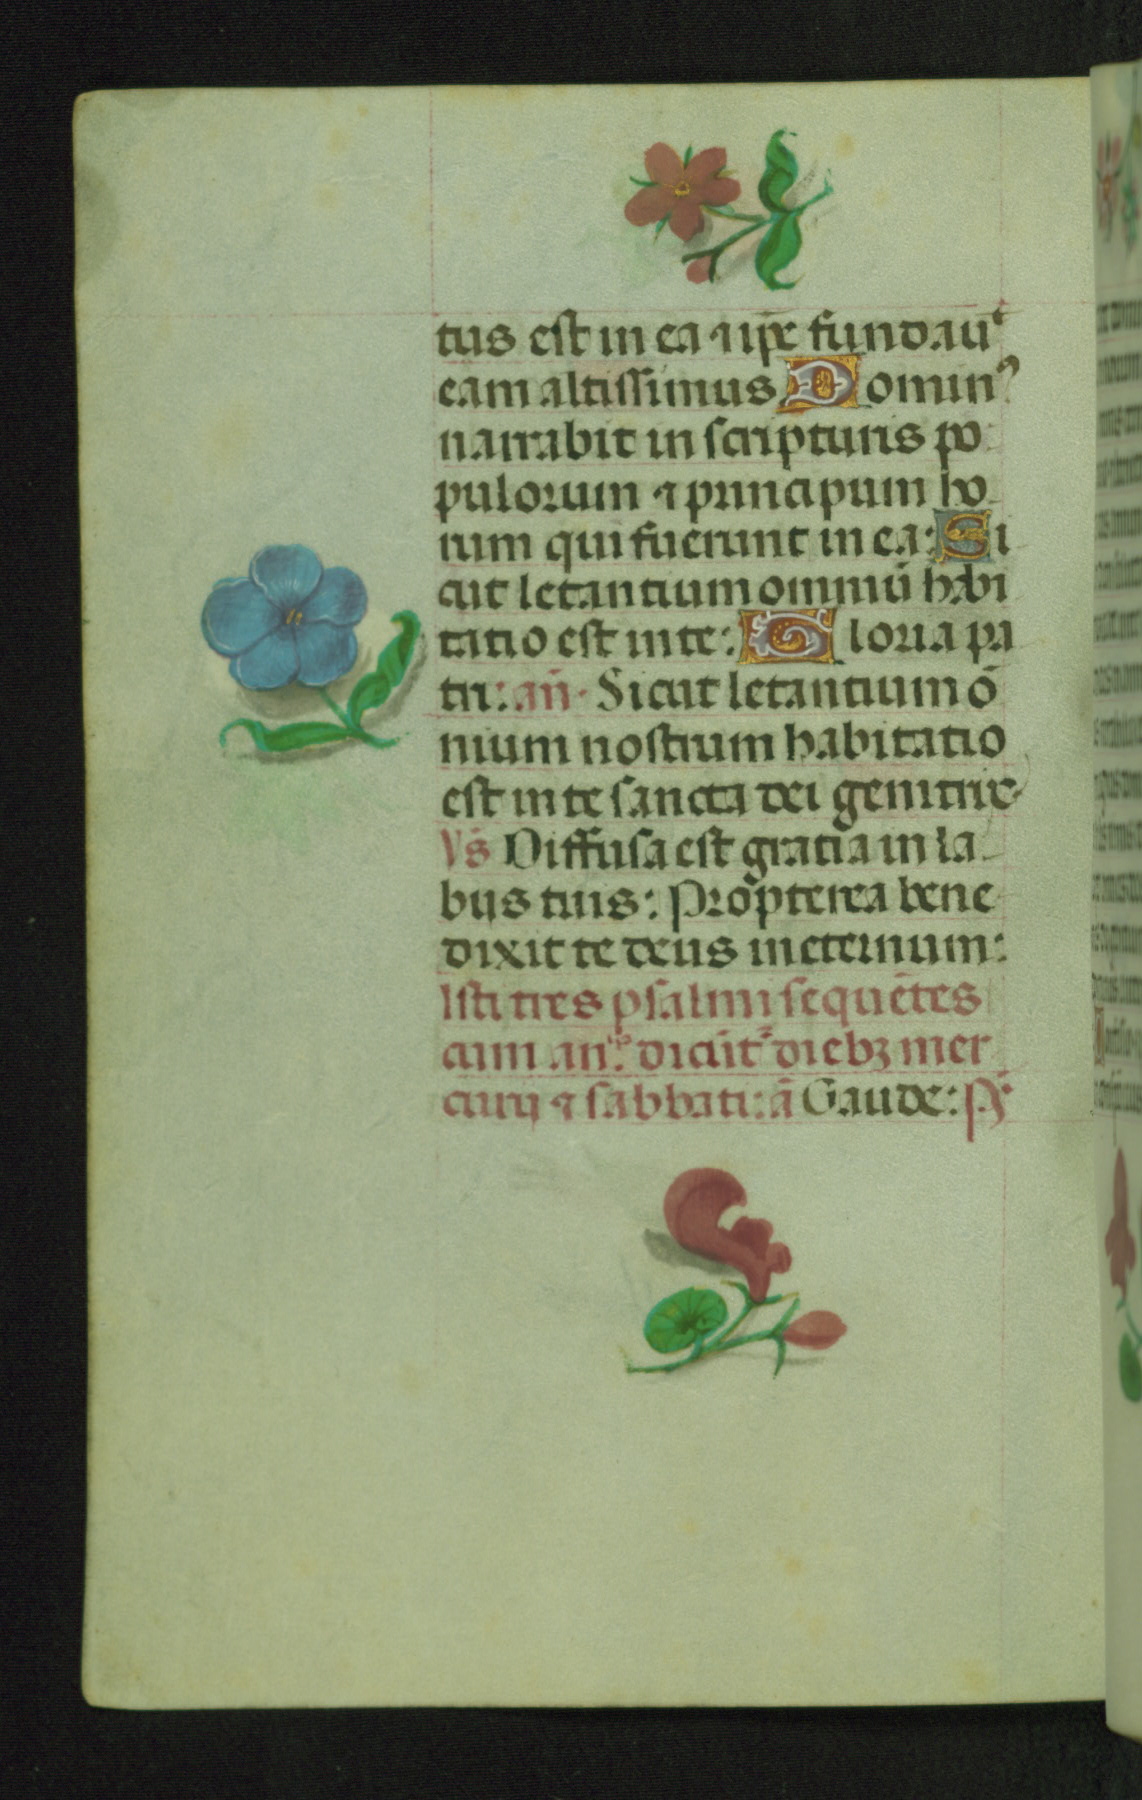 tus est in ea ⁊ ip̄e fundauᵗ
eam altissimus Dominꝰ
narrabit in scripturis po
pulorum ⁊ principum ho
rum qui fuerunt in ea: Si
cut letantium omniū habi
tatio est in te: Gloria pa
tri: an̄. Sicut letantium ō
nium nostrum habitatio
est in te sancta dei genitrix
Vs̄ Diffusa est gratia in la
bijs tuis: Propterea bene
dixit te deus in eternum:
Isti tres psalmi sequētes
cum an. dicūt diebꝫ mer
curij ⁊ sabbati: ā Gaude: Ps̄